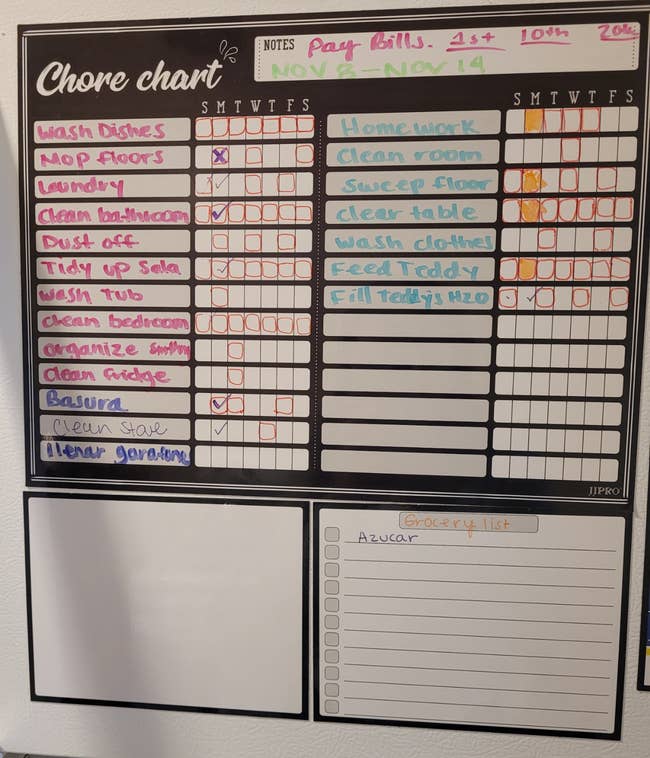 NOTES Pay Bills. 1st 10th 20th
NOV 8 - NOV 14
Chore chart
S M T W T F S
S M T W T F S
Wash Dishes
Mop floors
Laundry
Clean bathroom
Dust off
Tidy up Sala
Wash Tub
Clean bedroom
organize
Clean fridge
Basura
Clean
llenar
Homework
Clean room
Sweep floor
clear table
Wash clothes
Feed Teddy
Fill Teddy's H2O
JJPRO
Grocery list
Azucar